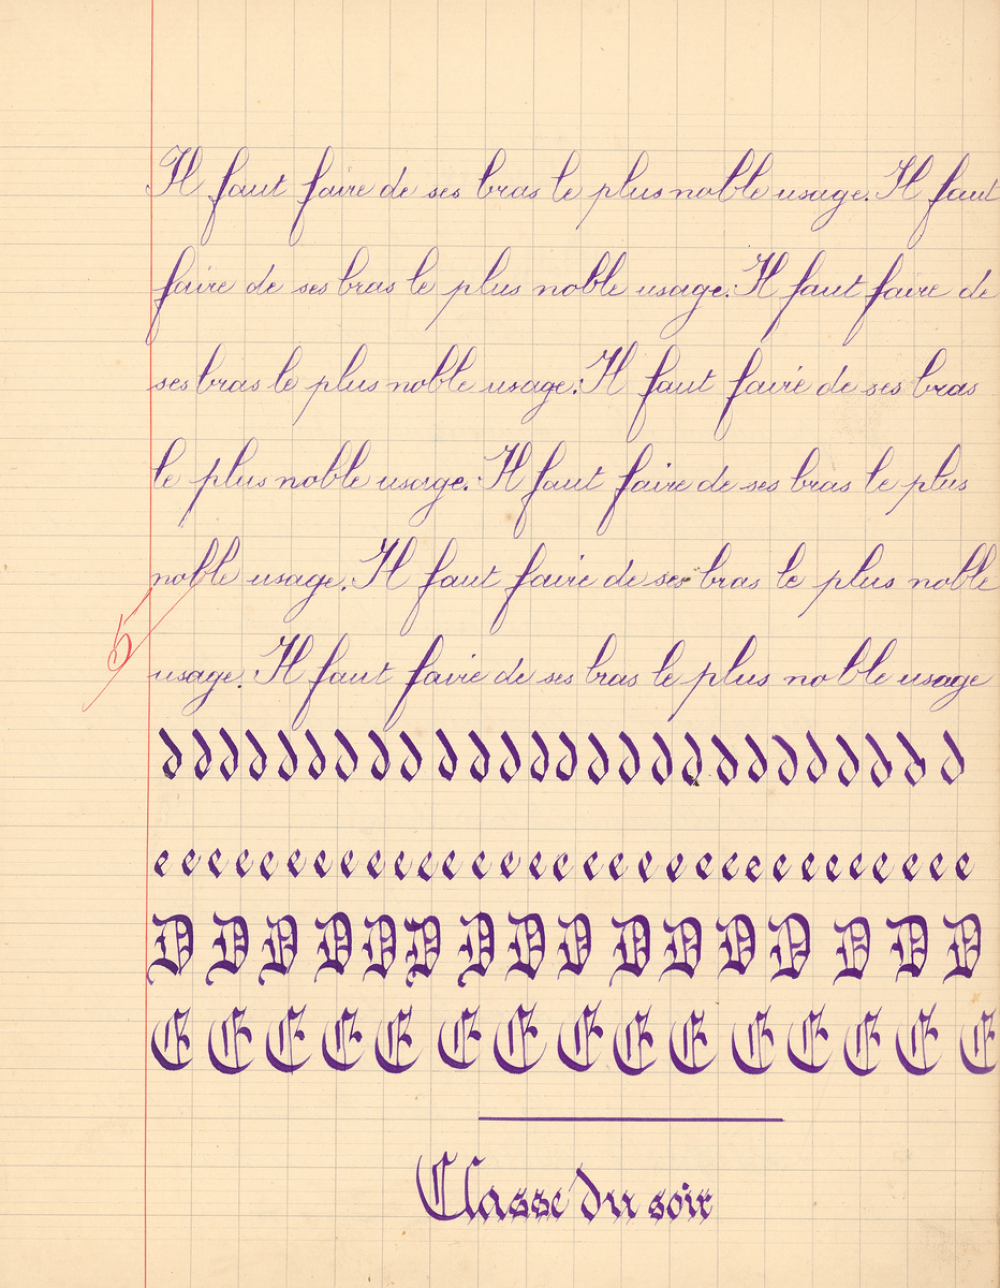 Il faut faire de ses bras le plus noble usage. Il faut
faire de ses bras le plus noble usage. Il faut faire de
ses bras le plus noble usage. Il faut faire de ses bras
le plus noble usage. Il faut faire de ses bras le plus
noble usage. Il faut faire de ses bras le plus noble
5
usage. Il faut faire de ses bras le plus noble usage
d d d d d d d d d d d d d d d d d d d d d d d d d d
e e e e e e e e e e e e e e e e e e e e e e e e e e e e e e e
D D D D D D D D D D D D D D D D
E E E E E E E E E E E E E E E
Classe du soir